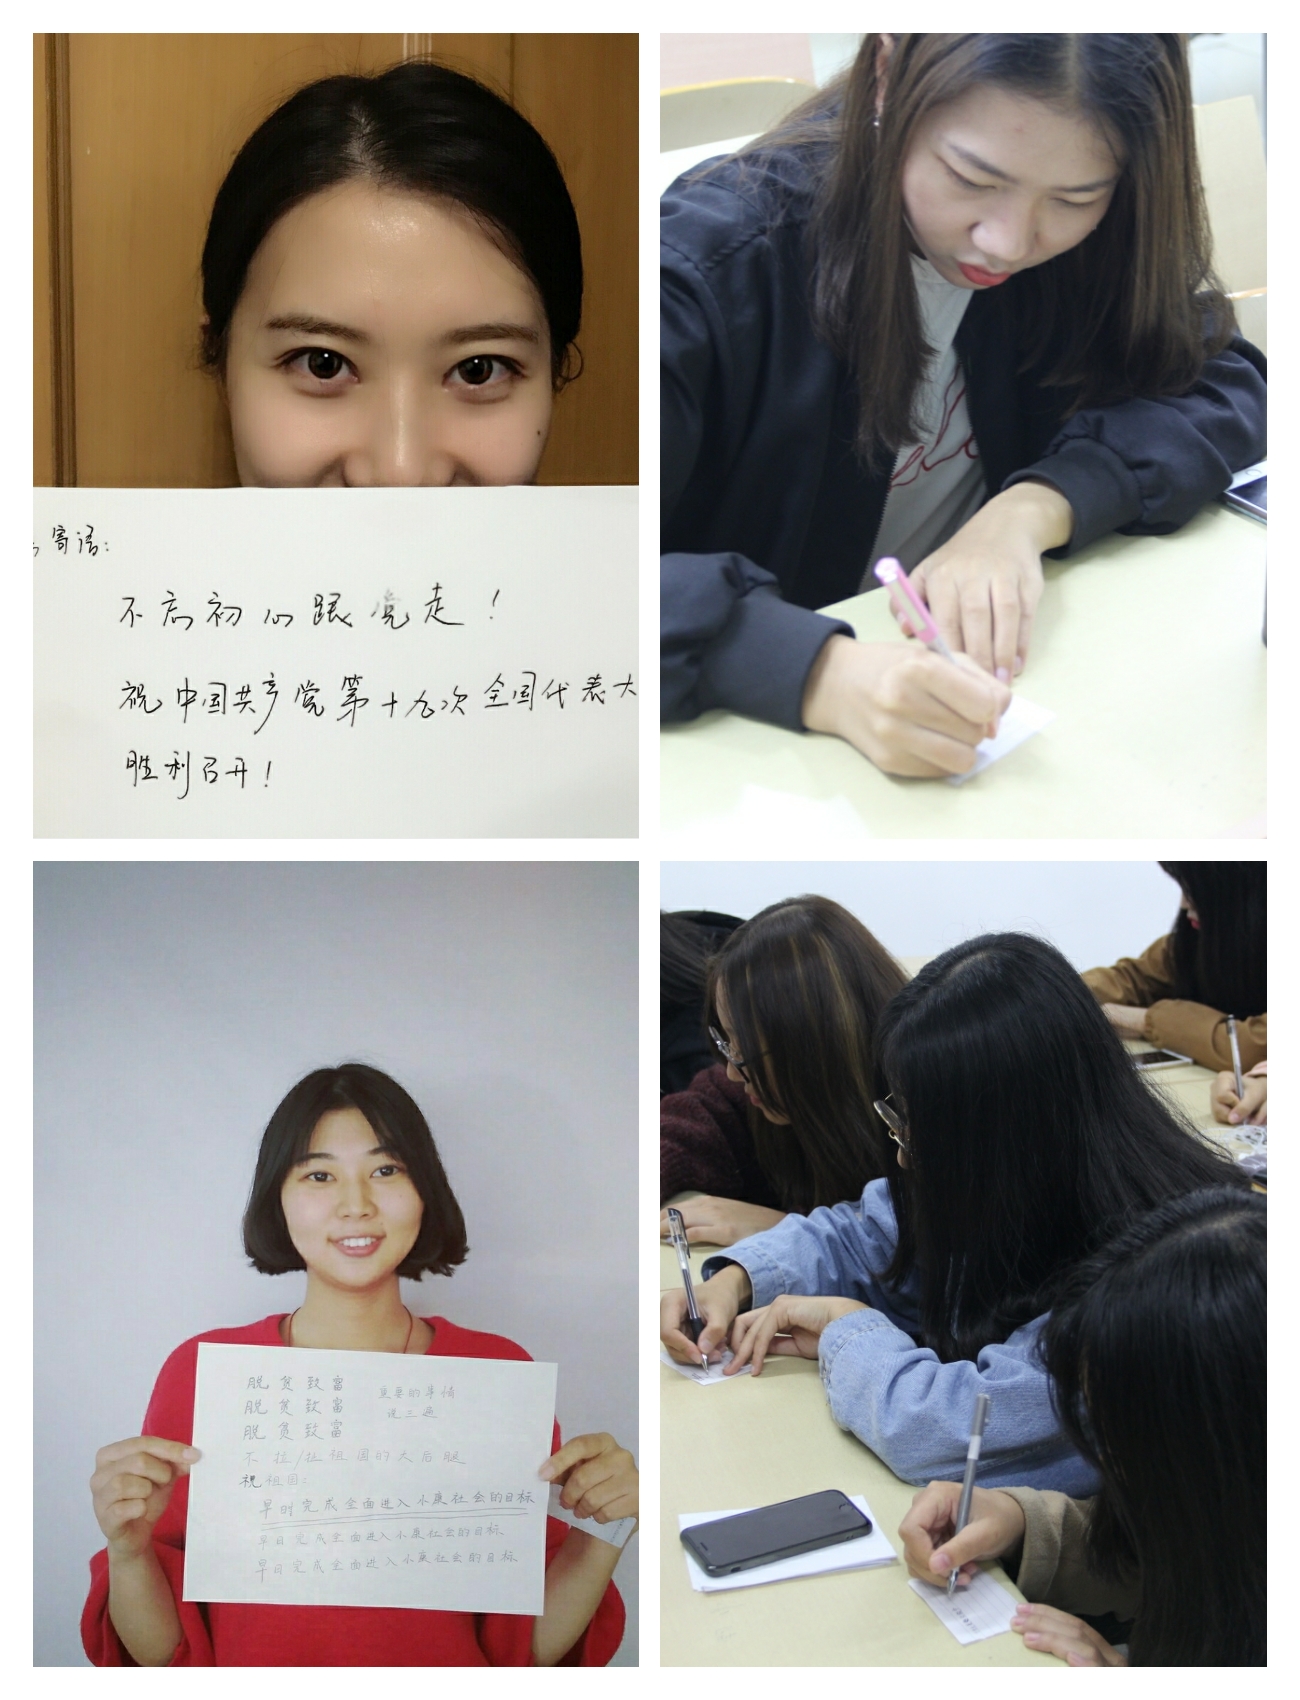 寄语:
不忘初心跟党走!
祝中国共产党第十九次全国代表大
胜利召开!
脱贫致富
脱贫致富
脱贫致富
重要的事情
说三遍
不拉/扯祖国的大后腿
祝祖国:
早日完成全面进入小康社会的目标
早日完成全面进入小康社会的目标
早日完成全面进入小康社会的目标